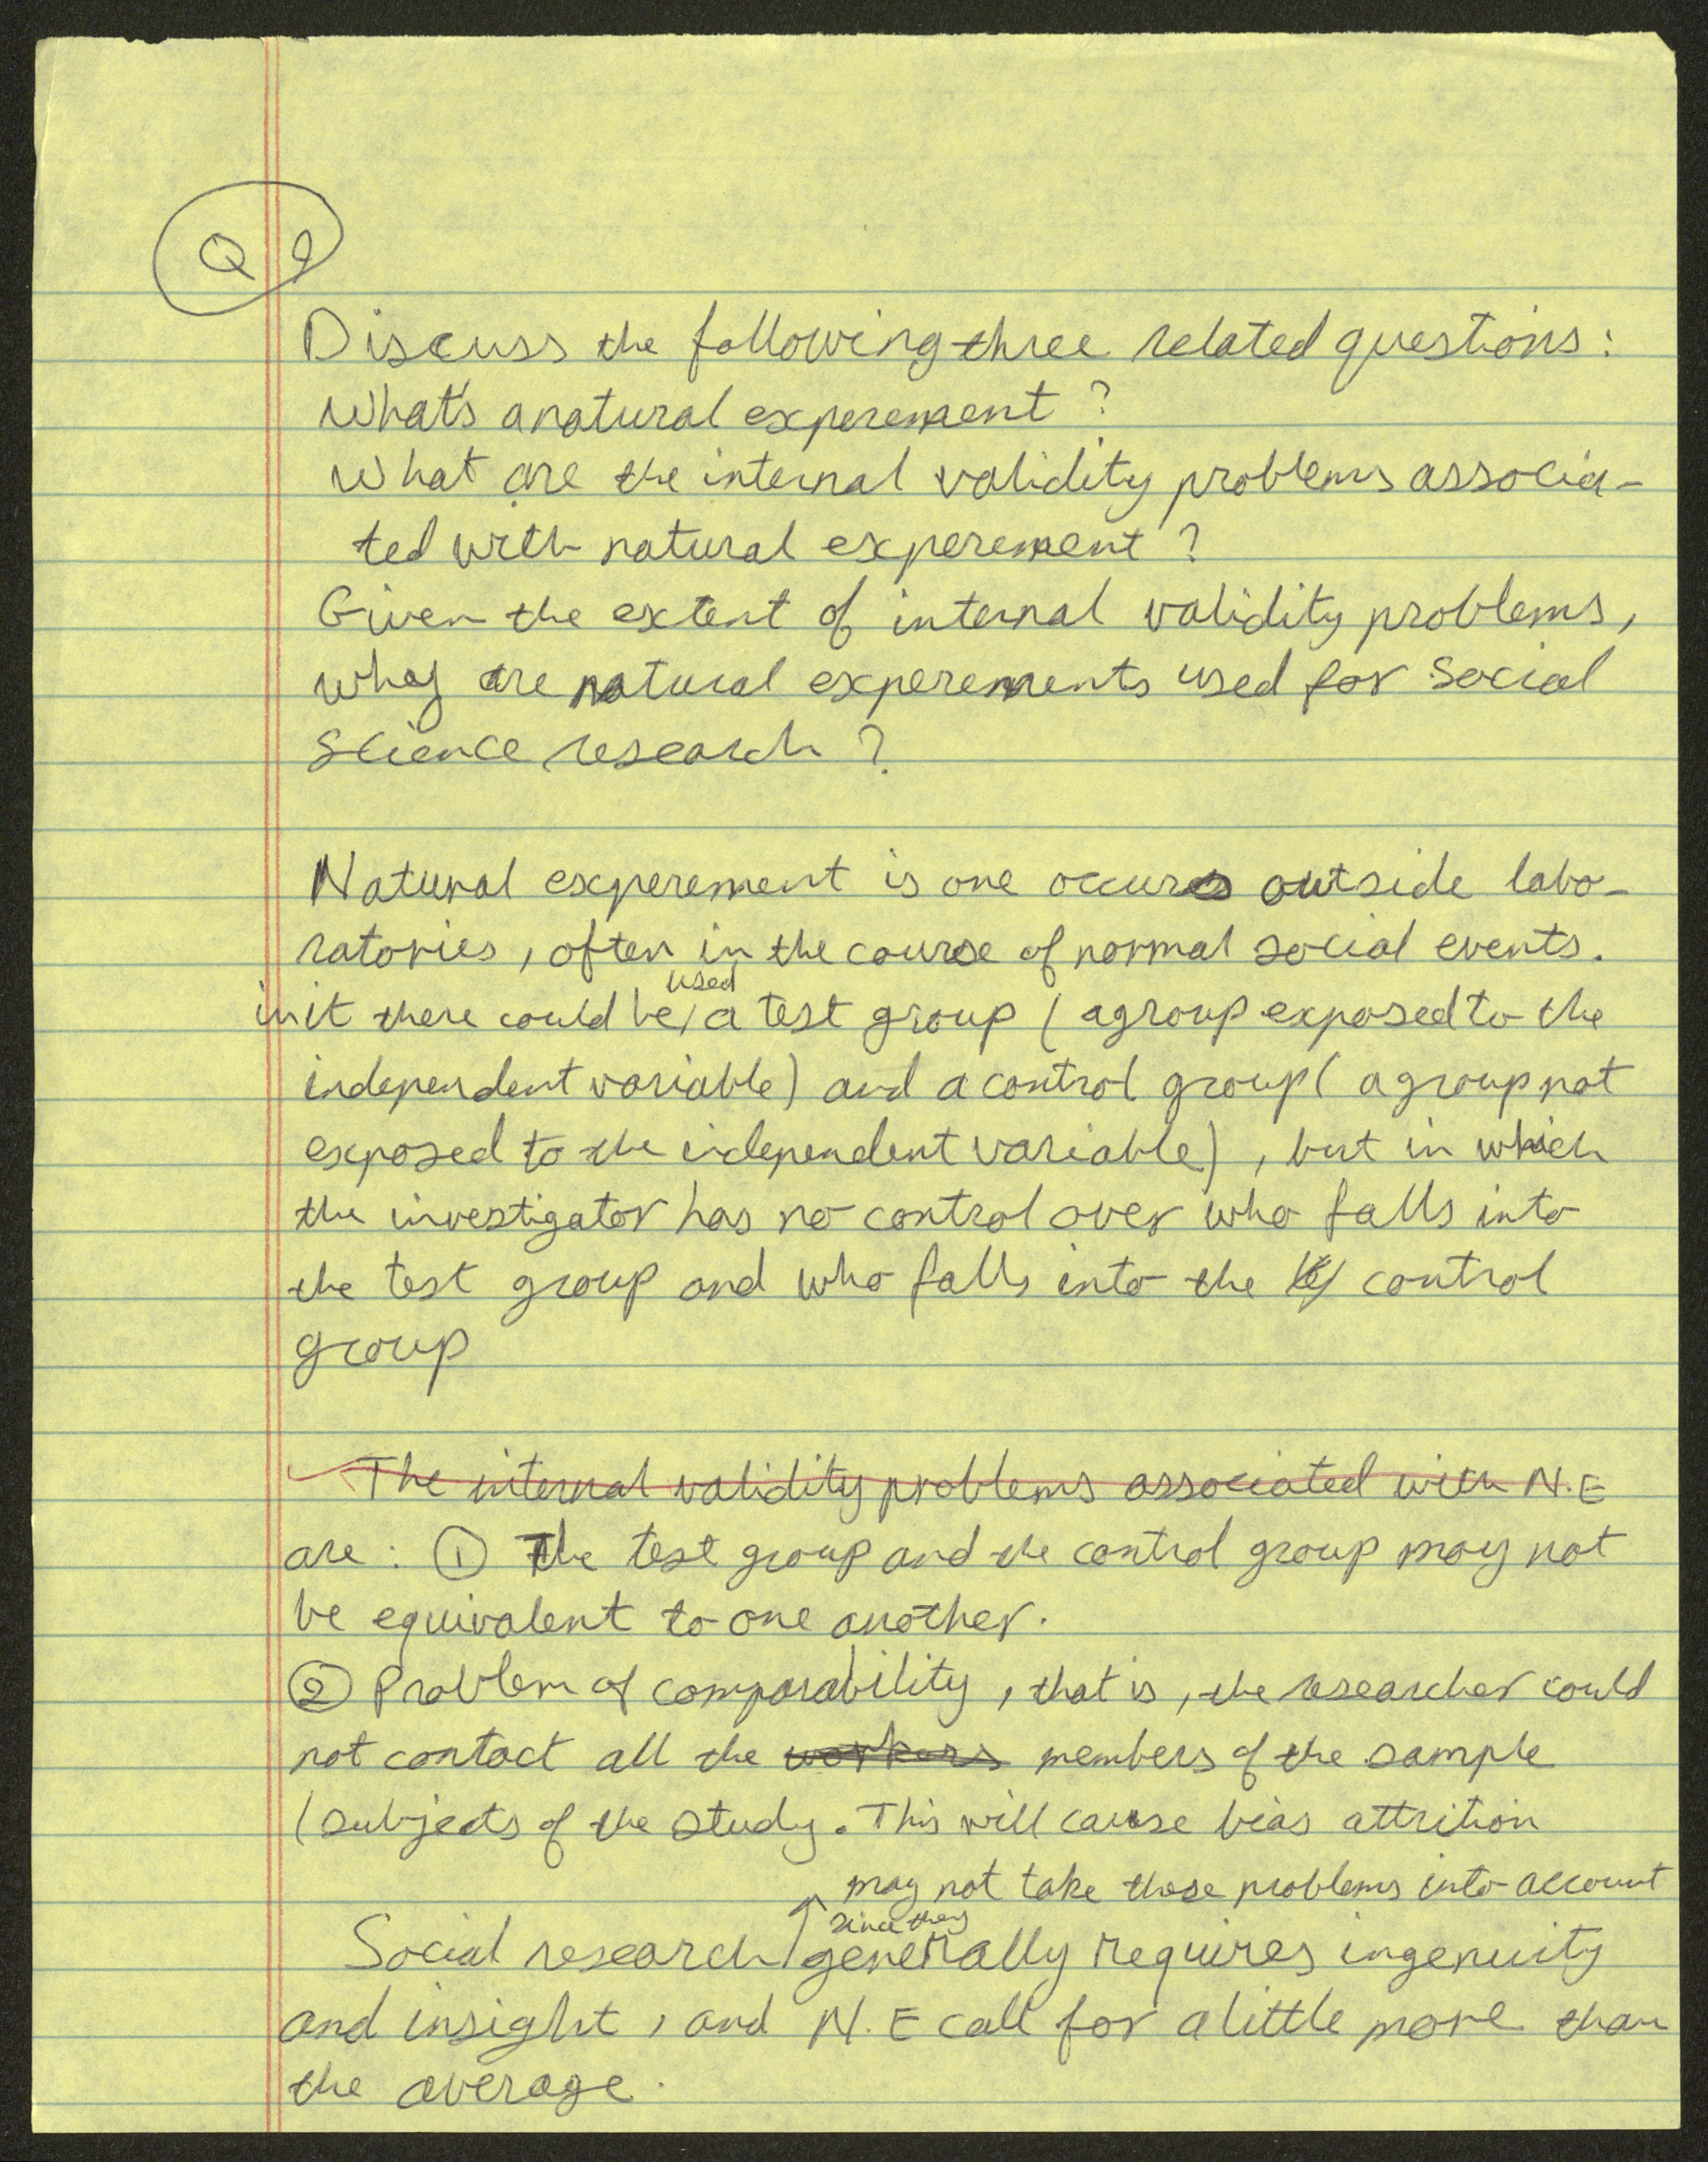 Q 9
Discuss the following three related questions:
What's a natural experement?
What are the internal validity problems associa-
ted with natural experement?
Given the extent of internal validity problems,
whey are natural experements used for social
science research?
Natural experement is one occures outside labo-
ratories, often in the course of normal social events.
in it there could be used a test group (a group exposed to the
independent variable) and a control group (a group not
exposed to the independent variable), but in which
the investigator has no control over who falls into
the test group and who falls into the control
group
The internal validity problems associated with N.E
are: ① The test group and the control group may not
be equivalent to one another.
② Problem of comparability, that is, the researcher could
not contact all the workers members of the sample
(subjects of the study. This will cause bias attrition
may not take those problems into account
since they
Social research generally requires ingenuity
and insight, and N.E call for a little more than
the average.